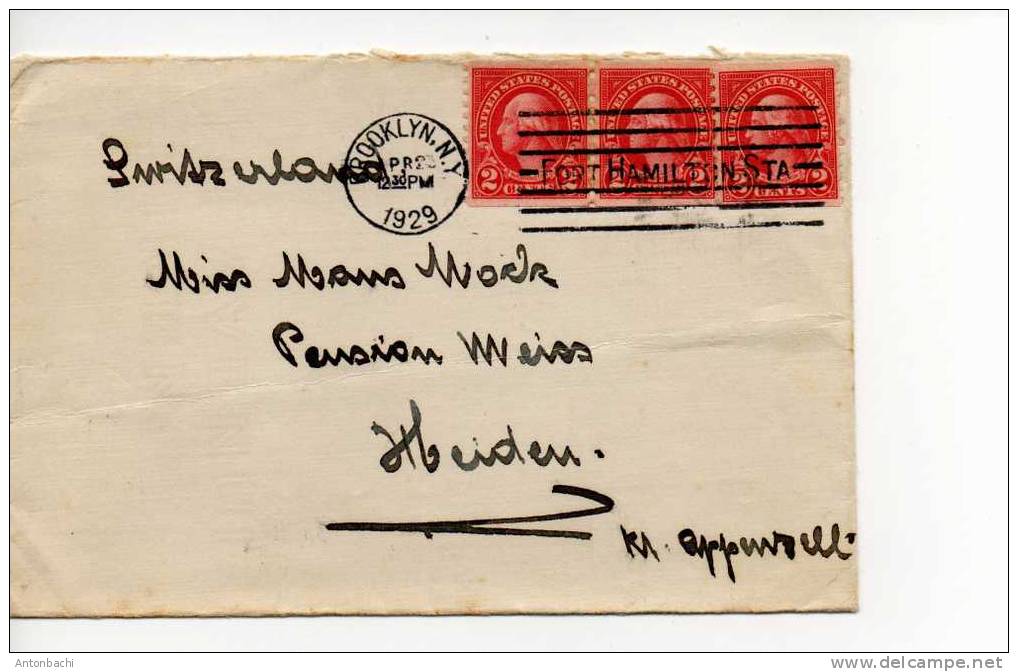 Switzerland
BROOKLYN, N.Y.
APR 23
12 30 PM
1929
UNITED STATES POSTAGE UNITED STATES POSTAGE UNITED STATES POSTAGE
FORT HAMILTON STA
2 CENTS 2 2 CENTS 2 2 CENTS 2
Miss Mans Mock
Pension Weiss
Heiden.
Kt. Appenzell
Antonbachi
www.delcampe.net